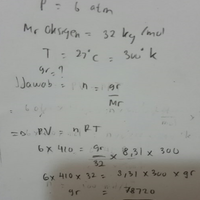 P = 6 atm
Mr oksigen = 32 kg/mol
T = 27°C = 300°k
gr = ?
Jawab = n = gr
Mr
=> P.V = n RT
6 x 410 = gr x 8,31 x 300
32
6 x 410 x 32 = 8,31 x 300 x gr
gr = 78720